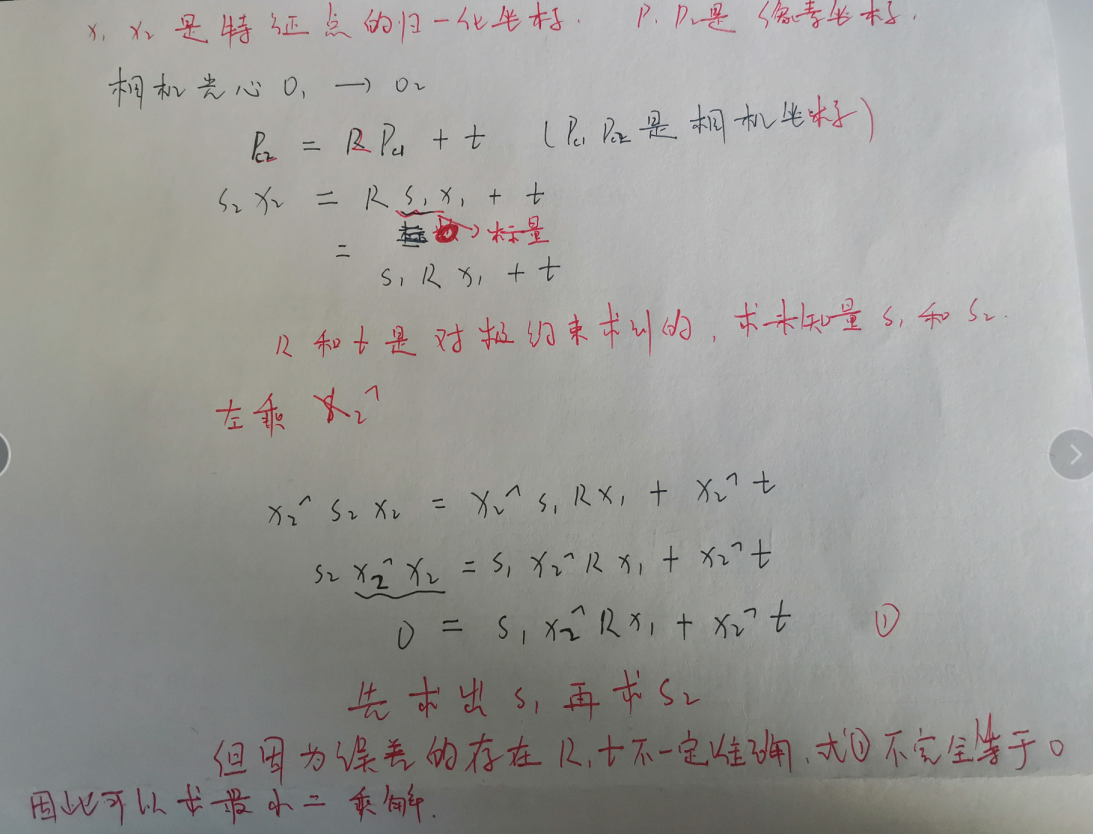 x₁ x₂ 是特征点的归一化坐标. P₁ P₂是像素坐标.
相机光心 O₁ → O₂
Pc₂ = R Pc₁ + t (Pc₁ Pc₂ 是相机坐标)
s₂ x₂ = R s₁ x₁ + t
→ 标量
= s₁ R x₁ + t
R 和 t 是对极约束求到的, 求未知量 s₁ 和 s₂.
左乘 x₂^
x₂^ s₂ x₂ = x₂^ s₁ R x₁ + x₂^ t
s₂ x₂^ x₂ = s₁ x₂^ R x₁ + x₂^ t
0 = s₁ x₂^ R x₁ + x₂^ t ①
先求出 s₁ 再求 s₂
但因为误差的存在 R, t 不一定准确, 式① 不完全等于 0
因此可以求最小二乘解.